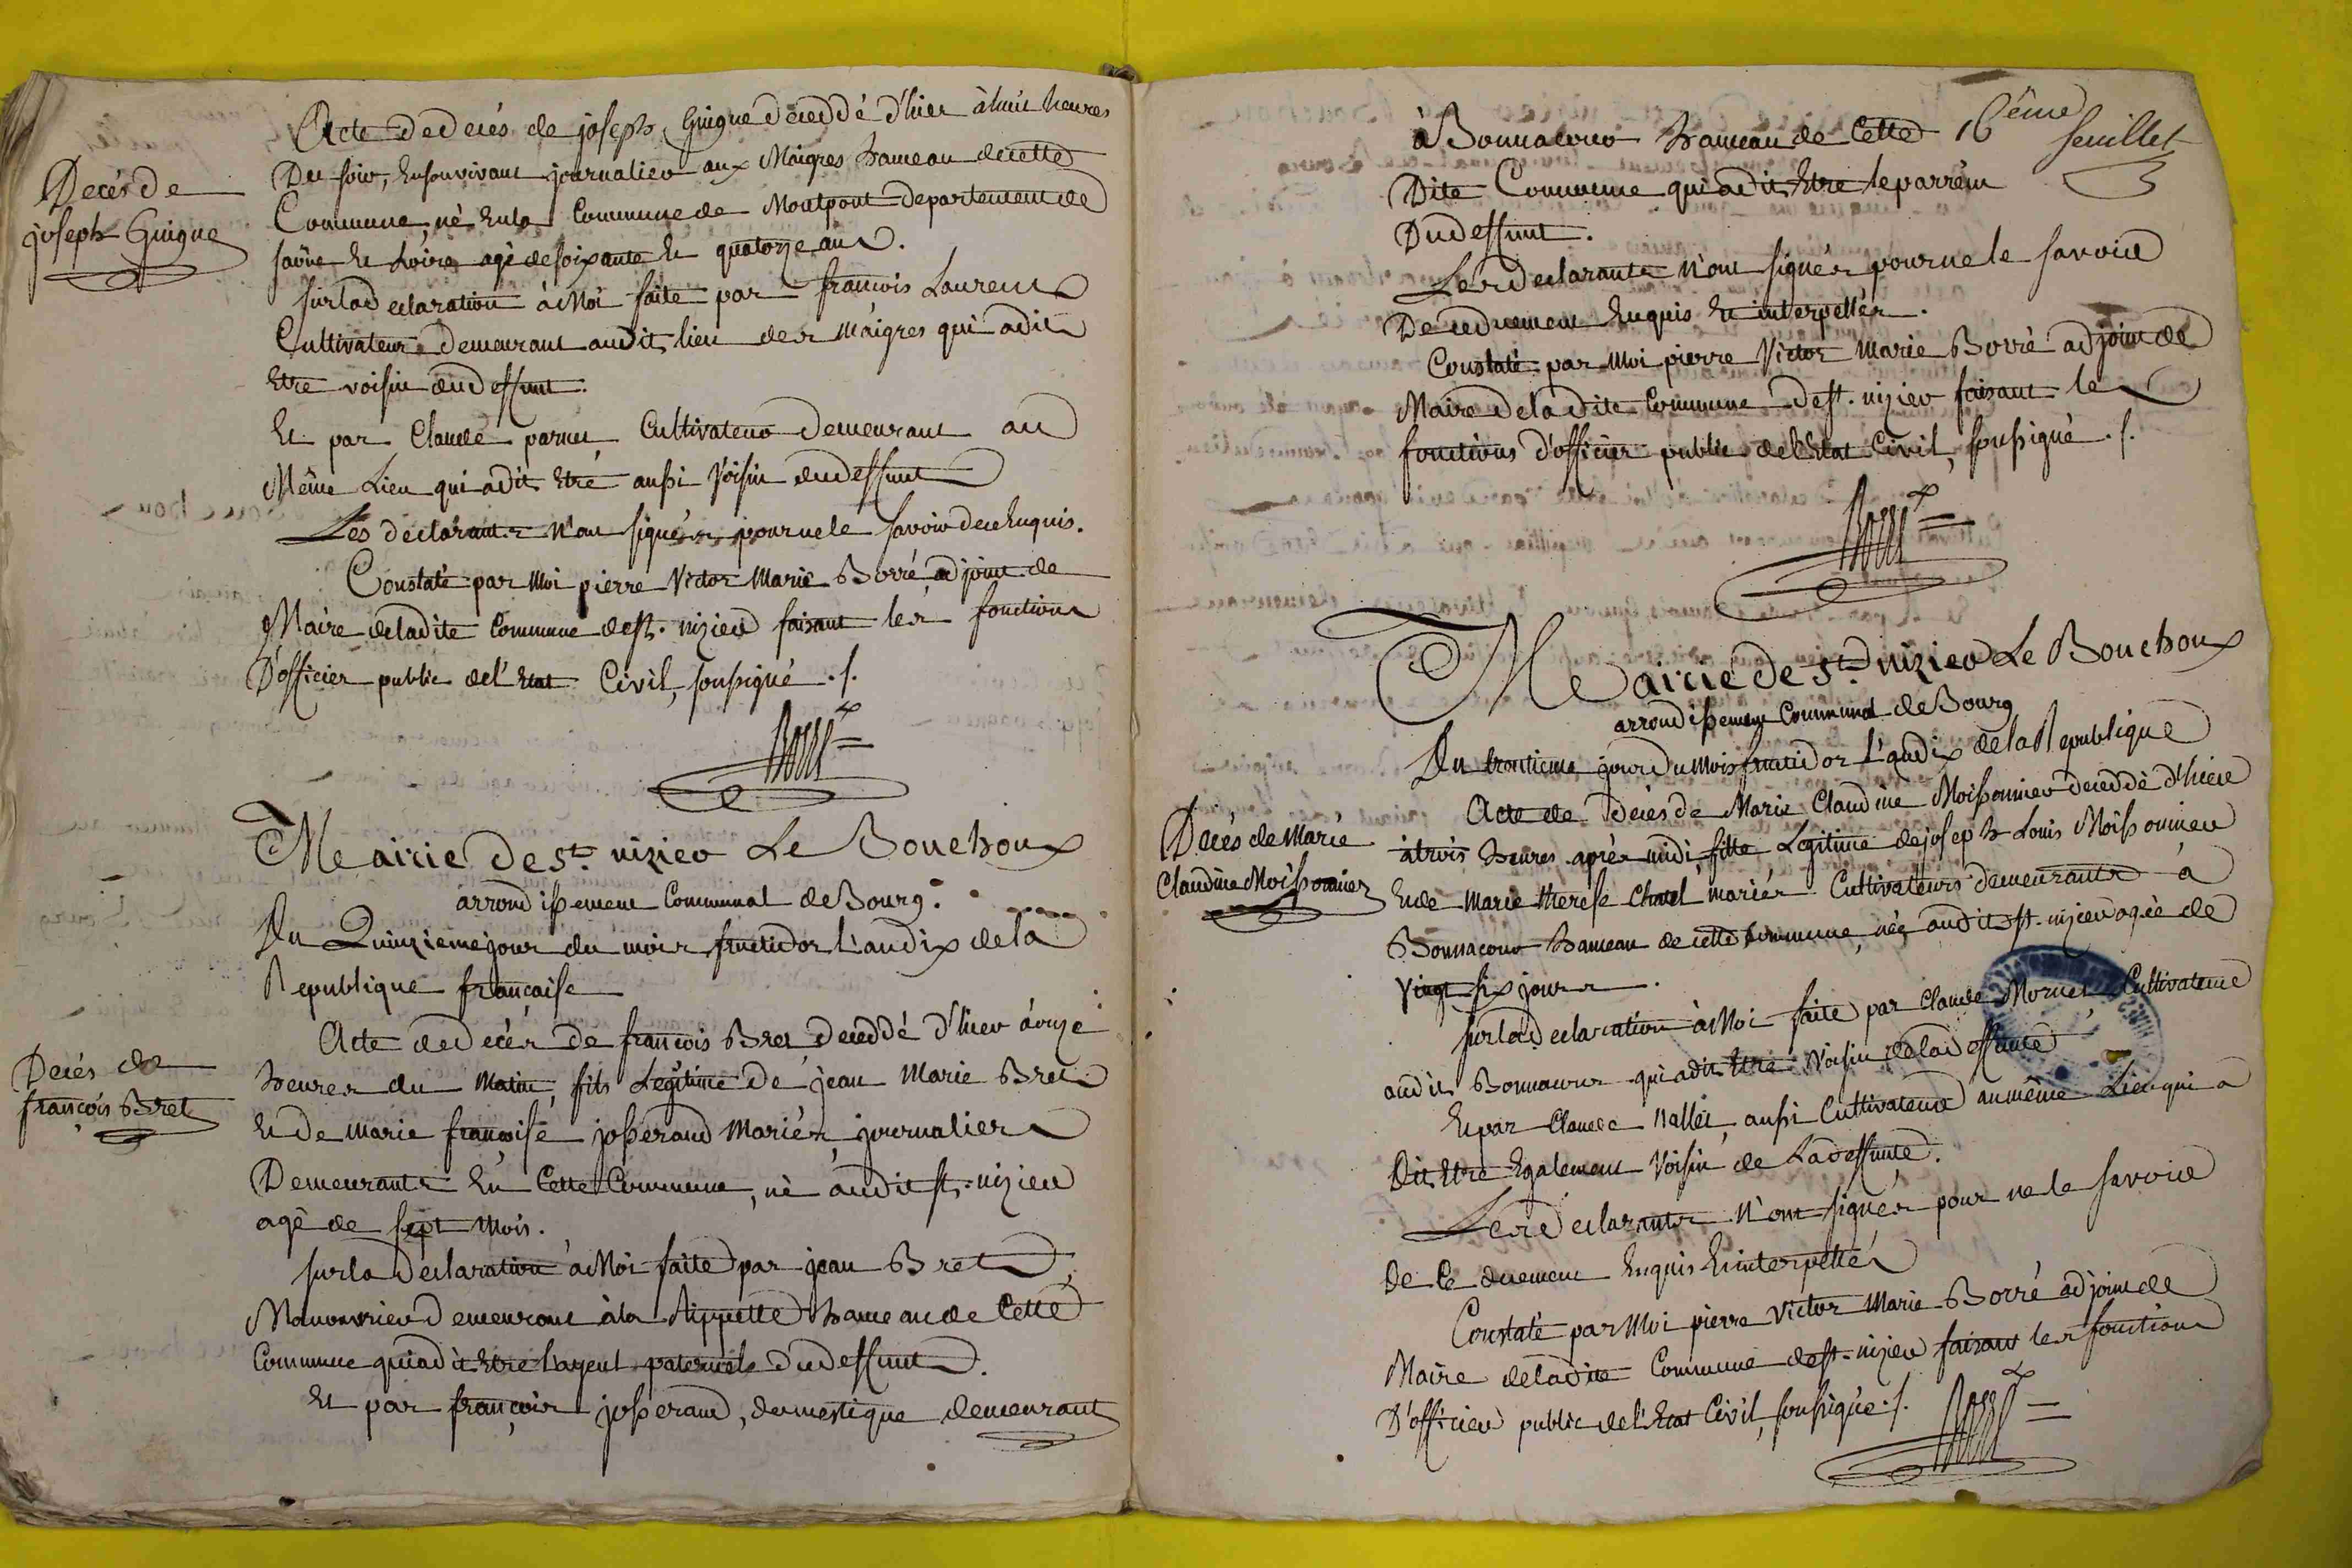 Acte de decés de joseph Guigue décedé d'hier à huit heures
Du soir, En son vivant journalier aux Maigres hameau de cette
Decés de
joseph Guigue
Commune, né En la Commune de Montpont departement de
saône Et Loire agé de soixante Et quatorze ans.
sur la declaration à Moi faite par francois Laurent
Cultivateur demeurant au dit lieu des Maigres qui a dit
Etre voisin du deffunt.
Et par Claude parnet Cultivateur demeurant au
Même Lieu qui a dit Etre aussi Voisin du deffunt
Les declarants n'ont signés pour ne le savoir de ce Enquis.
Constaté par Moi pierre Victor Marie Borré adjoint de
Maire de ladite Commune de st. nizier faisant les fonctions
D'officier public de l'Etat Civil, soussigné ./.
Mairie De St. nizier Le Bouchoux
arrondissement Communal de Bourg.
Du Quinzieme jour du mois fructidor L'an dix de la
Republique francaise
Acte de decés de francois Bret decedé d'hier à onze
Decés de
françois Bret
heures du Matin, fils Legitime de jean Marie Bret
Et De marie francoise josserand Mariés, journaliers
Demeurants En Cette Commune, né au dit st. nizier
agé de sept Mois.
sur la Declaration à Moi faite par jean Bret,
Manouvrier Demeurant à la Tippette hameau de Cette
Commune qui a dit Etre l'ayeul paternel du deffunt.
Et par françois josserand, domestique demeurant
16ême
feuillet
à Bonnacour hameau de Cette
Dite Commune qui a dit Etre le parrein
Du deffunt.
Les declarants N'ont signés pour ne le savoir
De ce duement Enquis Et interpellés.
Constaté par Moi pierre Victor Marie Borré adjoint de
Maire de la dite Commune de st. nizier faisant les
fonctions d'officier public de l'Etat Civil, soussigné ./.
Mairie De St. nizier Le Bouchoux
arrondissement Communal de Bourg
Du trentieme jour Du Mois fructidor L'an dix de la Republique
Acte de Decés de Marie Claudine Moissonnier decedé d'hier
Decés de Marie
Claudine Moissonnier
à trois heures après midi, fille Legitime de joseph Louis Moissonnier
Et de Marie therese Chatel mariés Cultivateurs demeurants à
Bonnacour hameau de cette Commune, née au dit st. nizier agée de
Vingt six jours.
sur la Declaration à Moi faite par Claude Moruet Cultivateur
au dit Bonnacour qui a dit Etre Voisin de la deffunte
Et par Claude Nallet, aussi Cultivateur au même Lieu qui a
Dit Etre Egalement Voisin de La deffunte.
Les declarants N'ont signés pour ne le savoir
De Ce duement Enquis Et interpellé
Constaté par Moi pierre Victor Marie Borré adjoint de
Maire de la dite Commune de st. nizier faisant les fonctions
D'officier public de l'Etat Civil, soussigné ./.